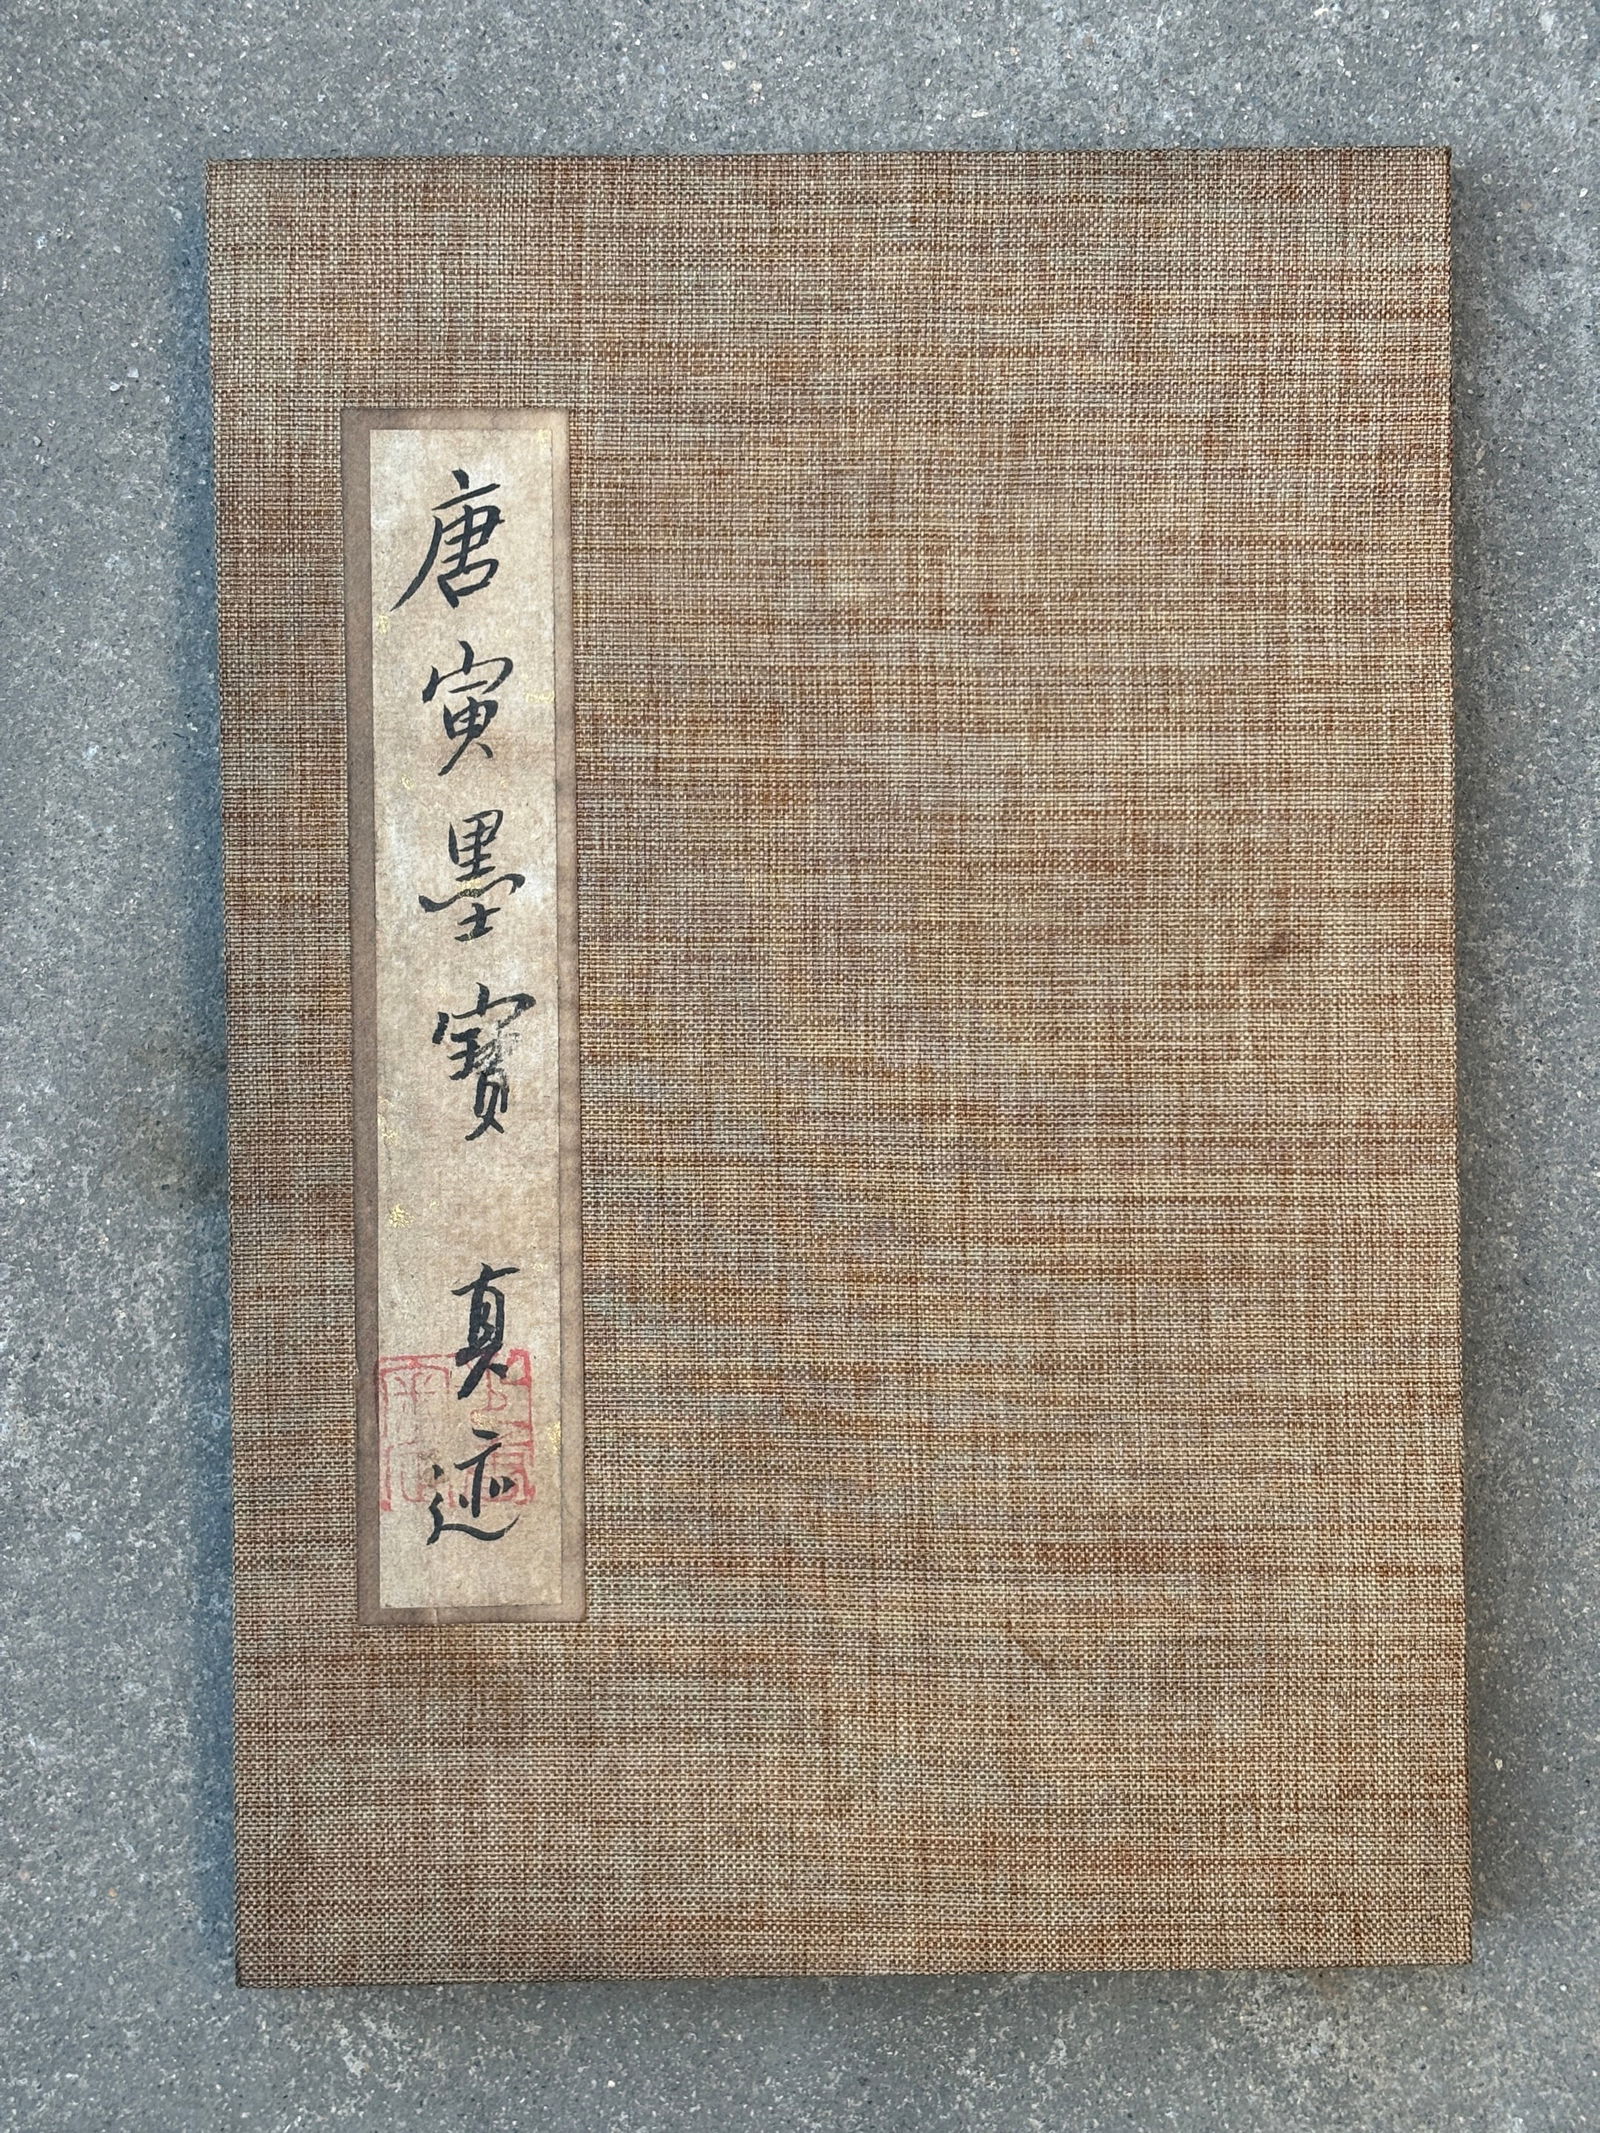 唐寅墨寶 真迹